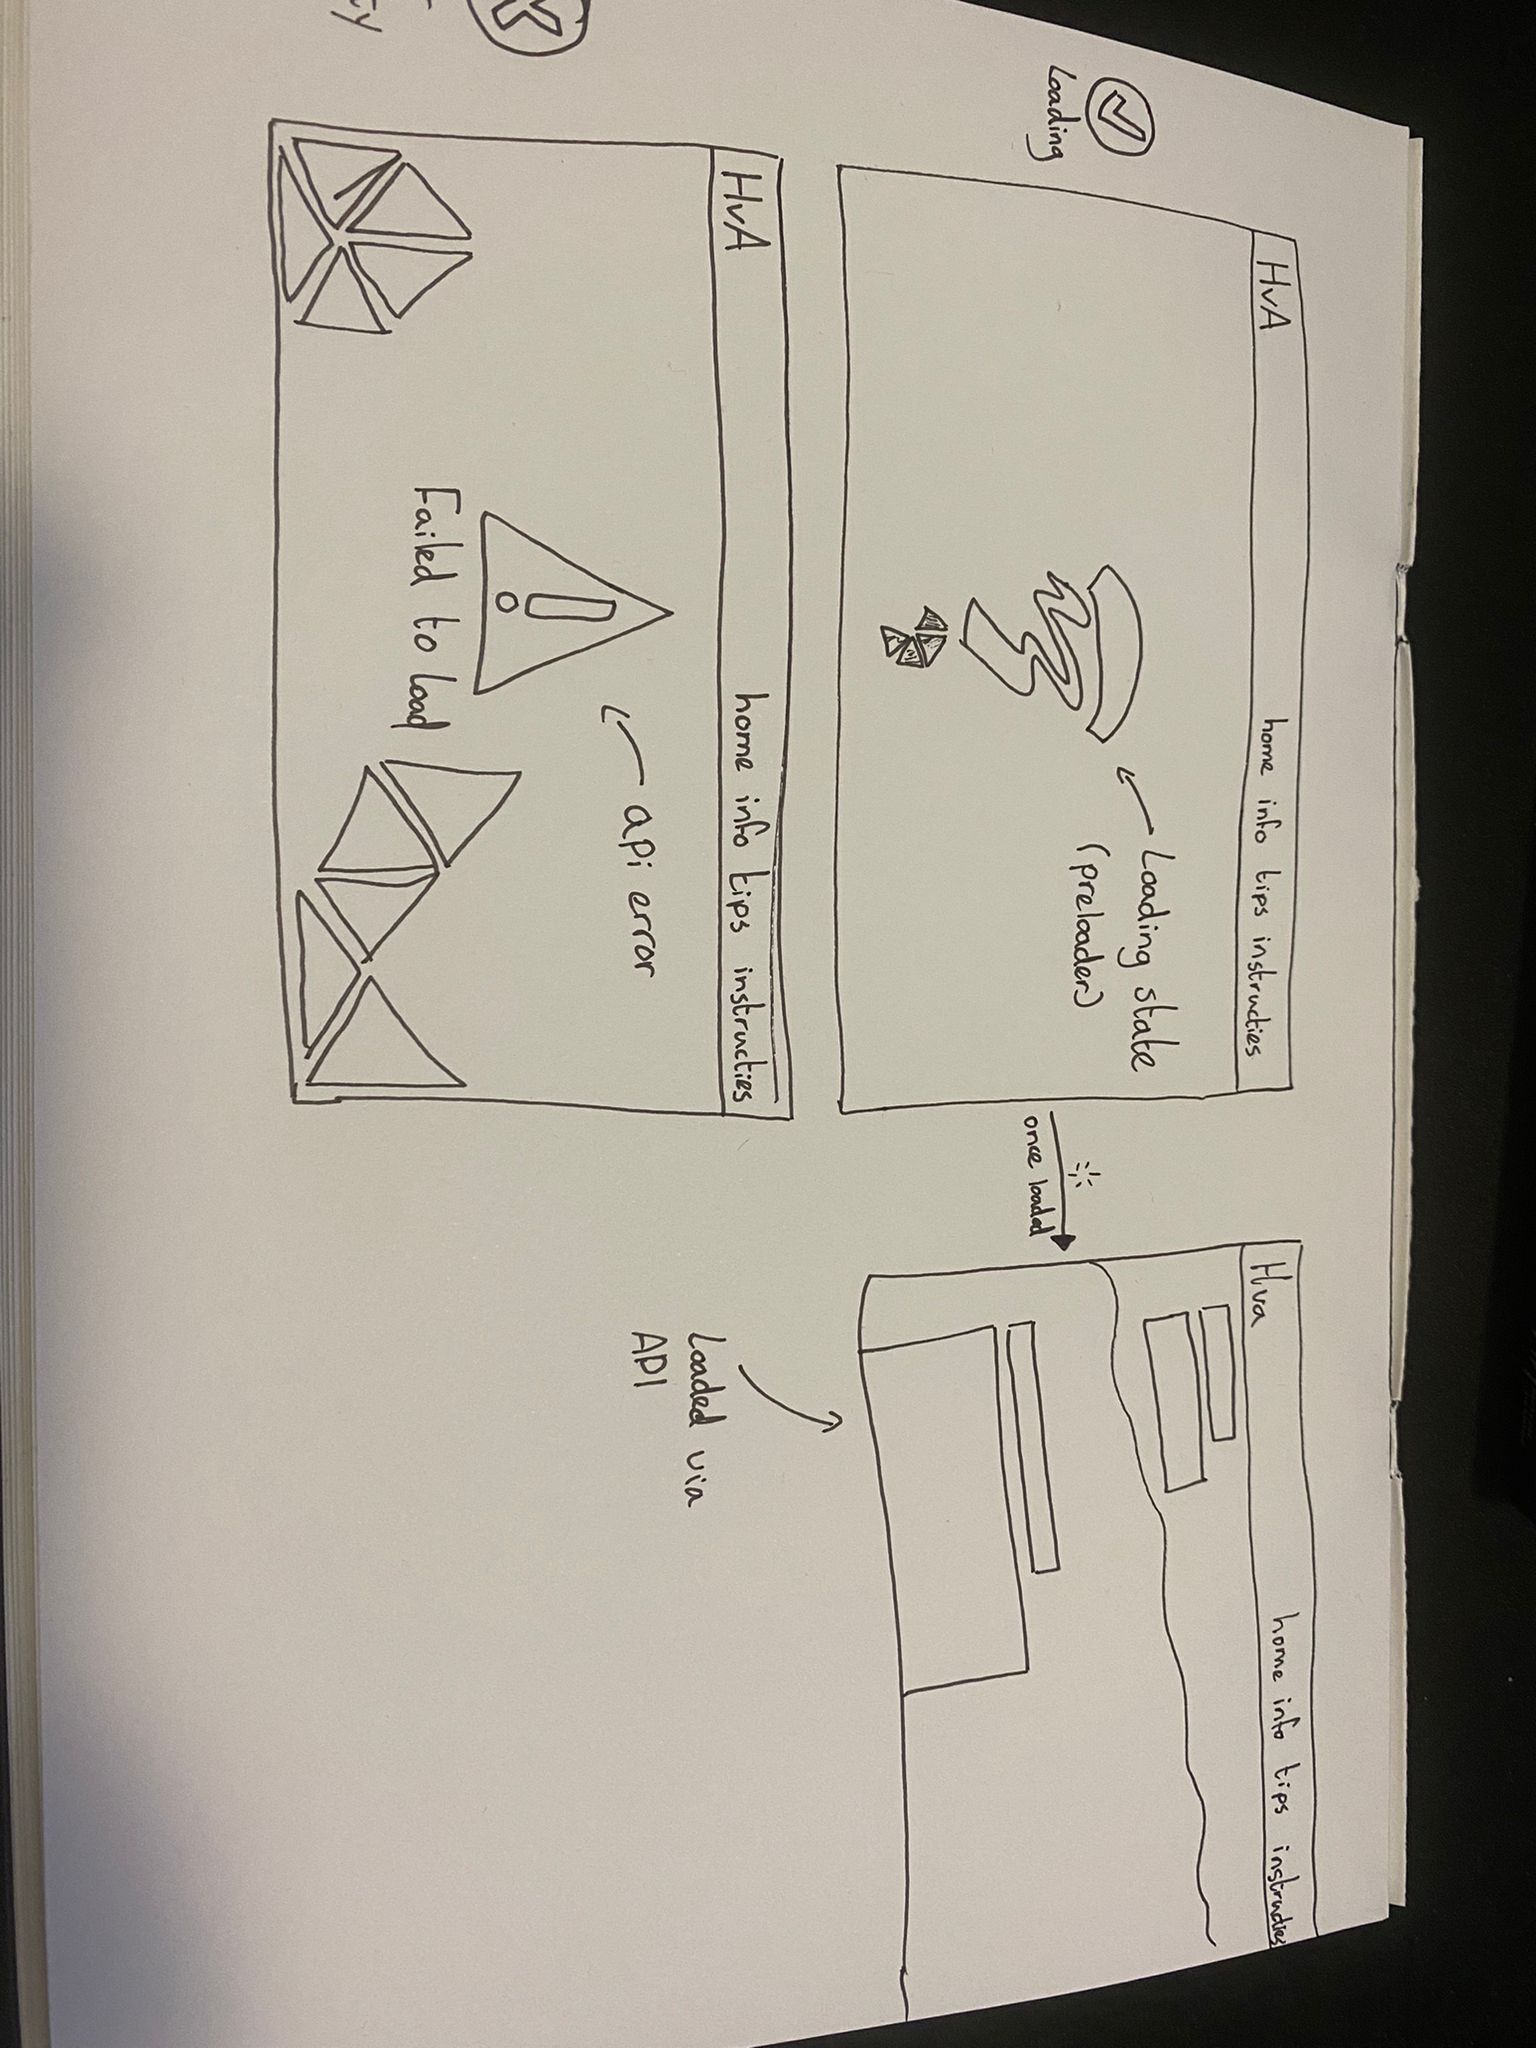 Loading
HvA
home info tips instructies
Loading state
(preloader)
once loaded
Hva
home info tips instructies
Loaded via
API
HvA
home info tips instructies
api error
Failed to load